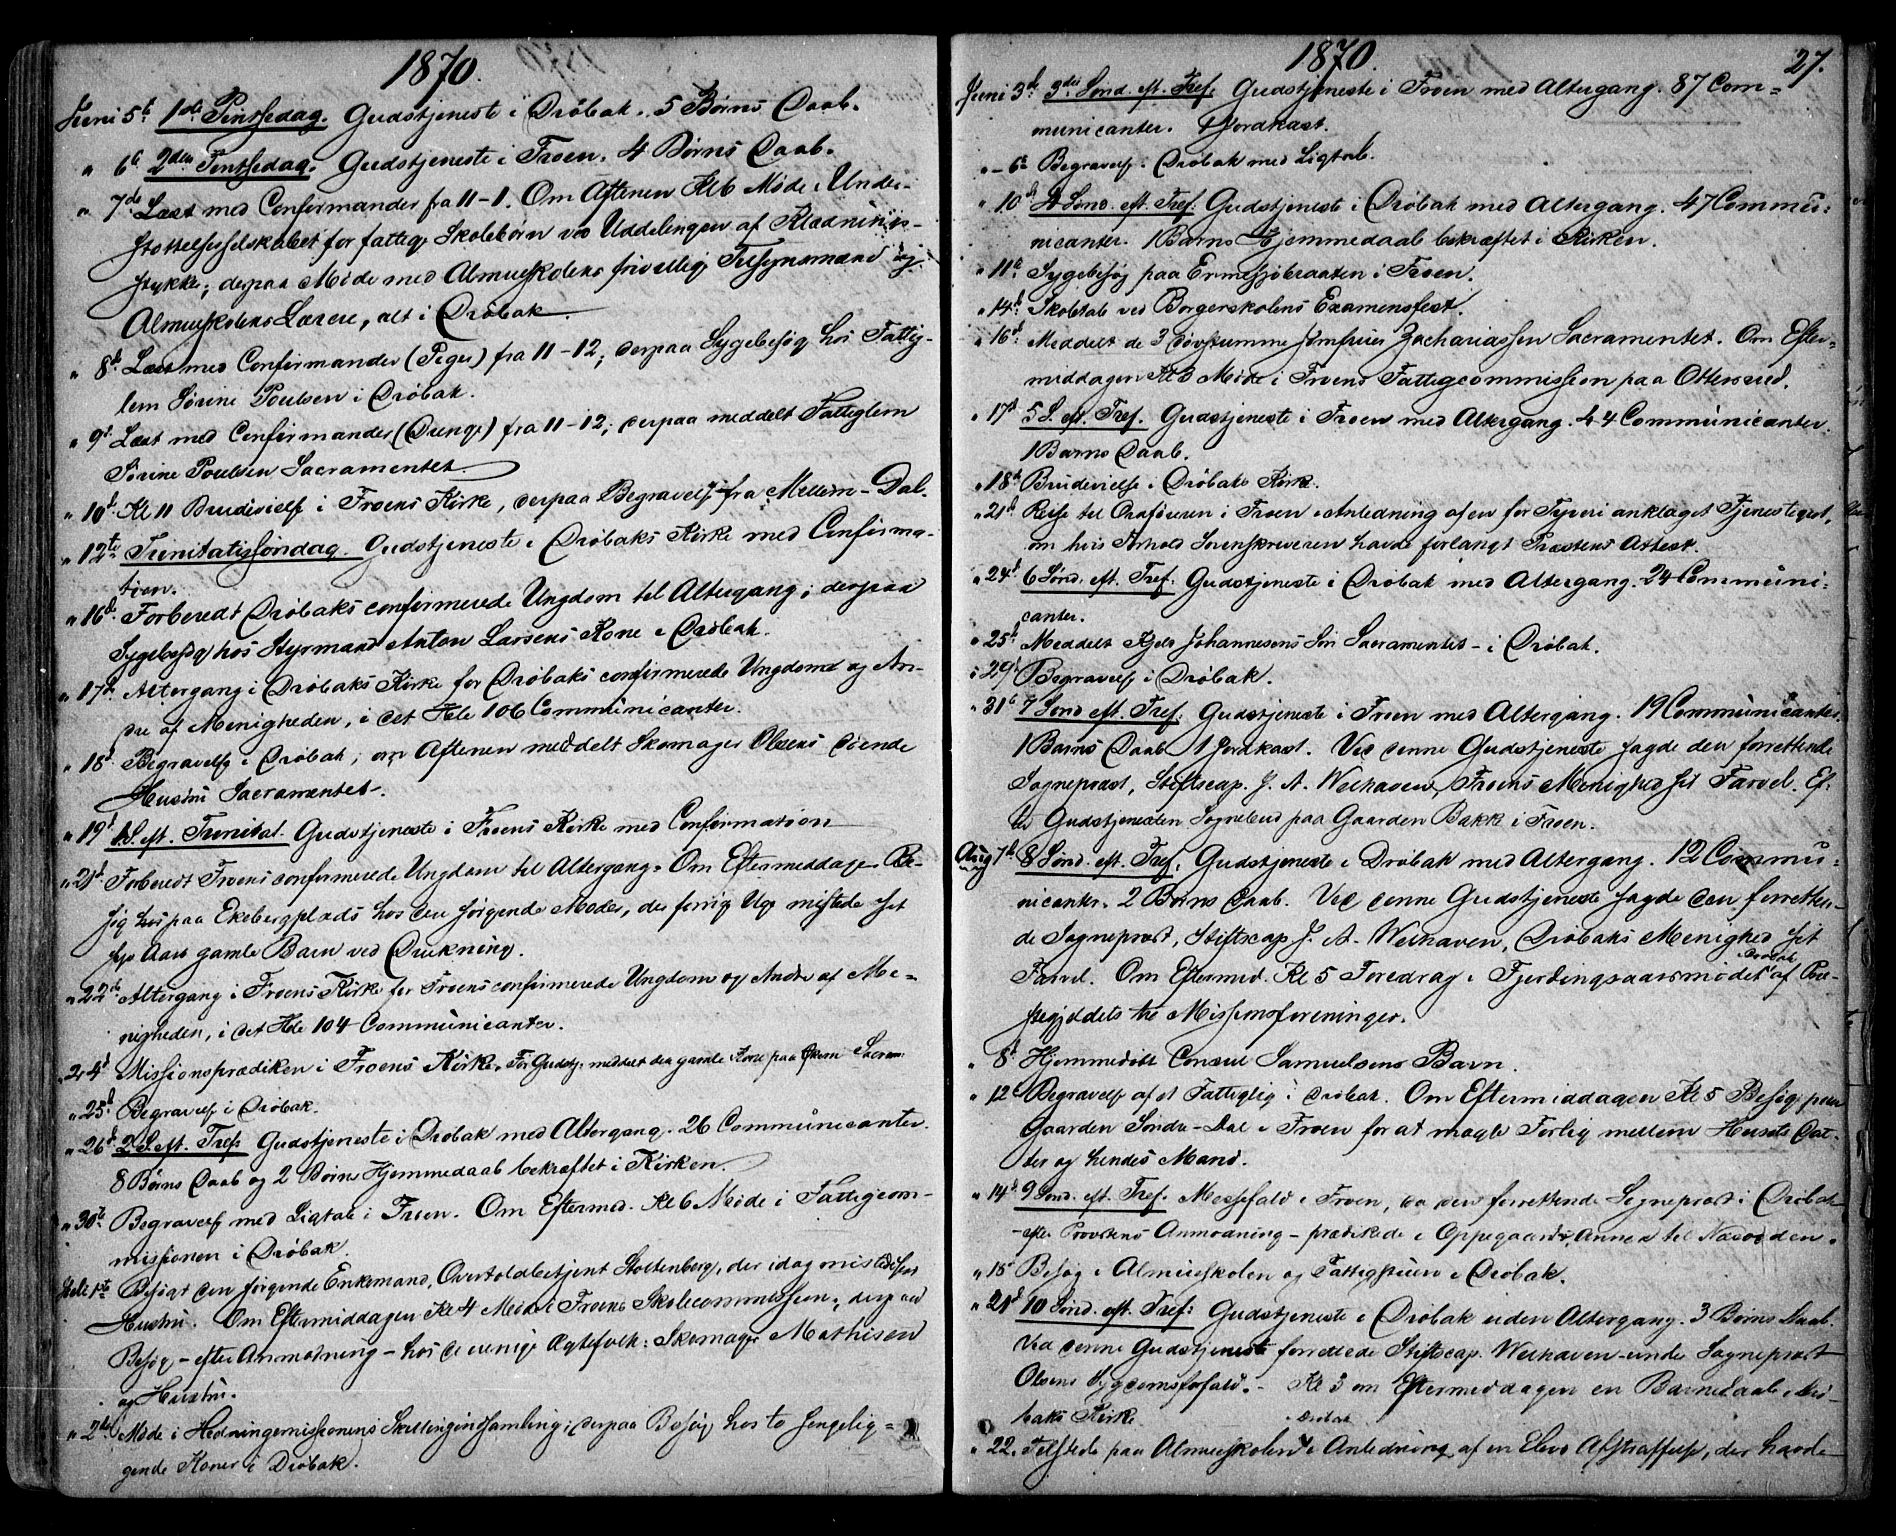 1870.
Juni 5t 1ste Pintsedag. Gudstjeneste i Dröbak. 5 Börns Daab.
" 6t 2den Pintsedag. Gudstjeneste i Froen. 4 Börns Daab.
" 7de Læst med Confirmander fra 11-1. Om Aftenen Kl 6 Möde i Under-
stöttelsesselskabet for fattige Skolebörn ved Uddelingen af Klædnings-
stykker; derpaa Möde med Almueskolens frivillige Tilsynsmænd og
Almueskolens Lærere, alt i Dröbak.
" 8d Læst med Confirmander (Piger) fra 11-12; derpaa Sygebesög hos Fattig-
lem Sörine Poulsen i Dröbak.
" 9d Læst med Confirmander (Drenge) fra 11-12; derpaa meddelt Fattiglem
Sörine Poulsen Sacramentet.
" 10d Kl 11 Brudevielse i Froens Kirke, derpaa Begravelse fra Mellem-Dal.
" 12te Trinitatissöndag. Gudstjeneste i Dröbaks Kirke med Confirma-
tion.
" 16d Forberedt Dröbaks confirmerede Ungdom til Altergang; derpaa
Sygebesög hos Styrmand Anton Larsens Kone i Dröbak.
" 17d Altergang i Dröbaks Kirke for Dröbaks confirmerede Ungdom og An-
dre af Menigheden, i det Hele 106 Communicanter.
" 18d Begravelse i Dröbak; om Aftenen meddelt Skomager Olsens döende
Hustru Sacramentet.
" 19d 1 S. eft. Trinitat. Gudstjeneste i Froens Kirke med Confirmation
" 21d Forberedt Froens confirmerede Ungdom til Altergang. Om Eftermiddagen Be-
sög paa Ekebergplads hos den sörgende Moder, der forrige Uge mistede sit
Aars gamle Barn ved Drukning.
" 22d Altergang i Froens Kirke for Froens confirmerede Ungdom og Andre af Me-
nigheden, i det Hele 104 Communicanter.
" 24d Missionsprædiken i Froens Kirke. Før Gudstj. meddelt den gamle Kone paa Sacram.
" 25d Begravelse i Dröbak.
" 26d 2 S. eft. Tref. Gudstjeneste i Dröbak med Altergang. 26 Communicanter.
8 Börns Daab og 2 Börns Hjemmedaab bekræftet i Kirken.
" 30te Begravelse med Ligtale i Froen. Om Eftermid. Kl 6 Möde i Fattigcom-
missionen i Dröbak.
Juli 1ste Besögt den sörgende Enkemand, Overtoldbetjent Stoltenberg, der idag mistede sin
Hustru. Om Eftermiddagen Kl 4 Möde i Froens Skolecommission; derpaa
Besög - efter Anmodning - hos de uenige Ægtefolk: Skomager Mathisen
og Hustru.
" 2den Möde i Hedningemissionens Skillingindsamling; derpaa Besög hos to sengelig-
gende Koner i Dröbak.
1870. 27.
Juni 3d 3die Sönd. eft. Tref. Gudstjeneste i Froen med Altergang. 87 Com-
municanter. 1 Jordkast.
" - 6te Begravelse i Dröbak med Ligtale.
" 10d 4 Sönd. eft. Tref. Gudstjeneste i Dröbak med Altergang. 47 Commu-
nicanter. 1 Barns Hjemmedaab bekræftet i Kirken.
" 11te Sygebesög paa Ermesjöbraaten i Froen.
" 14d Skoletale ved Borgerskolens Examensfest.
" 16d Meddelt de 3 dövstumme Jomfruer Zachariassen Sacramentet. Om Efter-
middagen Kl 3 Möde i Froens Fattigcommission paa Ottersrud.
" 17d 5 S. eft. Tref. Gudstjeneste i Froen med Altergang. 44 Communicanter.
1 Barns Daab.
" 18d Brudevielse i Dröbaks Kirke.
" 21d Reise til i Froen i Anledning af en for Tyveri anklaget Tjenestegut,
om hvis Forhold Sorenskriveren havde forlangt Præstens Attest.
" 24d 6 Sönd. eft. Tref. Gudstjeneste i Dröbak med Altergang. 24 Communi-
canter.
" 25d Meddelt Kjels Johannesens Sön Sacramentet - i Dröbak.
" 29d Begravelse i Dröbak.
" 31te 7 Sönd eft. Tref. Gudstjeneste i Froen med Altergang. 19 Communicanter.
1 Barns Daab 1 Jordkast. Ved denne Gudstjeneste sagde den forrettende
Sognepræst, Stiftscap. J. A. Welhaven, Froens Menighed sit Farvel. Ef-
ter Gudstjenesten Sognebud paa Gaarden Bakk i Froen.
Aug 7d 8 Sönd. eft. Tref. Gudstjeneste i Dröbak med Altergang. 12 Commu-
nicanter. 2 Börns Daab. Ved denne Gudstjeneste sagde den forretten-
de Sognepræst, Stiftscap J. A. Welhaven, Dröbaks Menighed sit
Farvel. Om Eftermid. Kl 5 Foredrag i Fjerdingsaarsmödet af Dröbak Præ-
stegjeldets tre Missionsforeninger.
" 8d Hjemmedöbt Consul Samuelsens Barn.
" 12te Begravelse af et Fattiglig i Dröbak. Om Eftermiddagen Kl 5 Besög paa
Gaarden Söndre-Dal i Froen for at mægle Forlig mellem Husets Dat-
ter og hendes Mand.
" 14d 9 Sönd. eft. Tref. Messefald i Froen, da den forrettende Sognepræst i Dröbak
- efter Provstens Anmodning - prædikede i Oppegaards, Annex til Næsodden.
" 15d Besög i Almueskolen og Fattigstuen i Dröbak.
" 21d 10 Sönd. eft. Tref. Gudstjeneste i Dröbak uden Altergang. 3 Börns Daab.
Ved denne Gudstjeneste forrettede Stiftscap. Welhaven under Sognepræst
Olsens Sygdomsforfald. - Kl 3 om Eftermiddagen en Barnedaab i Drö-
baks Kirke.
" 22. Tilstede paa Almueskolen i Dröbak i Anledning af en Elevs Afstraffelse, der havde